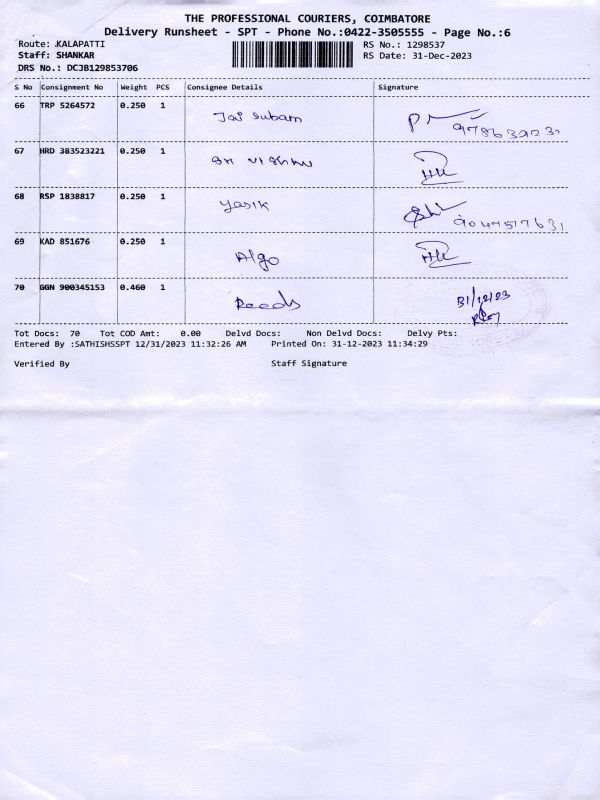 THE PROFESSIONAL COURIERS, COIMBATORE
Delivery Runsheet - SPT - Phone No.:0422-3505555 - Page No.:6
Route: KALAPATTI
RS No.: 1298537
Staff: SHANKAR
RS Date: 31-Dec-2023
DRS No.: DCJB129853706
S No Consignment No Weight PCS Consignee Details Signature
66 TRP 5264572 0.250 1 Jai Subam
67 HRD 383523221 0.250 1 Sri Vishnu
68 RSP 1838817 0.250 1 Yasik 9047577631
69 KAD 851676 0.250 1 Algo
70 GGN 900345153 0.460 1 Reeds 31/12/23
Tot Docs: 70 Tot COD Amt: 0.00 Delvd Docs: Non Delvd Docs: Delvy Pts:
Entered By :SATHISHSSPT 12/31/2023 11:32:26 AM Printed On: 31-12-2023 11:34:29
Verified By Staff Signature